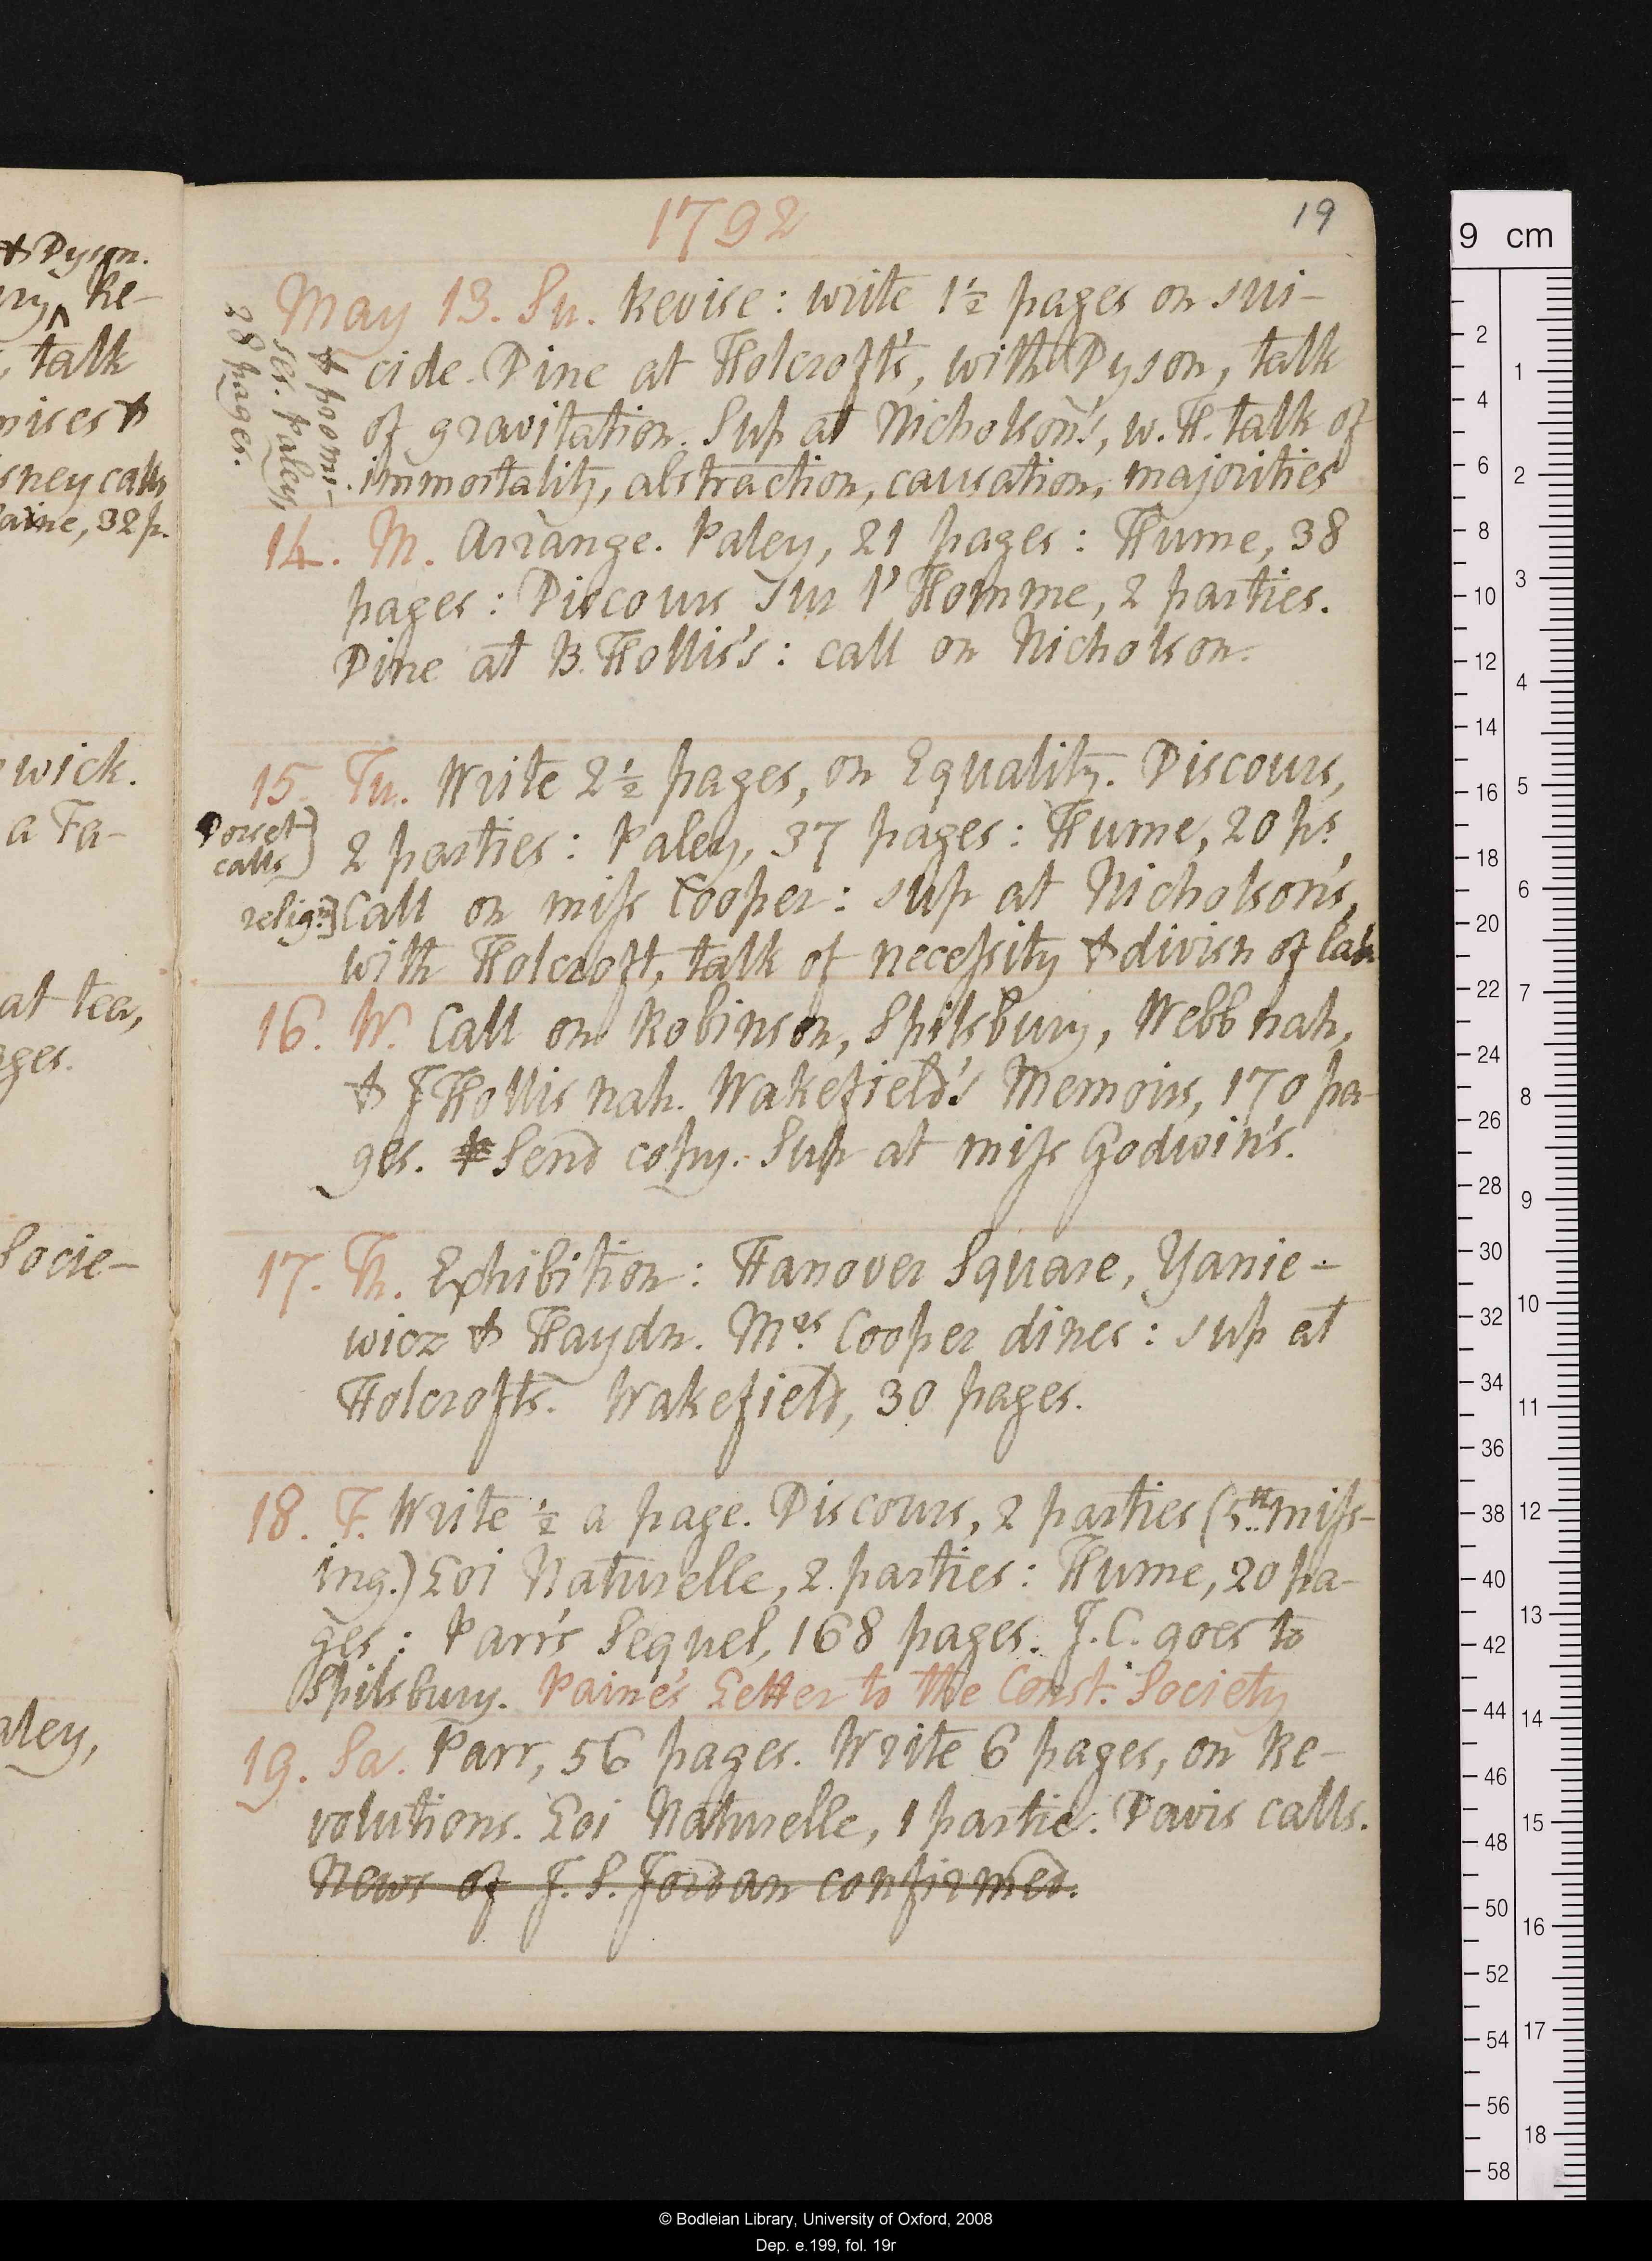 & Dyson.
Re-
, talk
mises &
sney calls
aine, 32 p.
wick.
a Fa-
at tea,
ges.
Socie-
aley,
1792
19
May 13. Su. Revise: write 1½ pages on sui-
cide. Dine at Holcroft's, with Dyson, talk
of gravitation. Sup at Nicholson's, w. H. talk of
immortality, abstraction, causation, majorities
& promi-
ses. Paley,
28 pages.
14. M. Arrange. Paley, 21 pages: Hume, 38
pages: Discours sur l'Homme, 2 parties.
Dine at B. Hollis's: call on Nicholson.
15. Tu. Write 2½ pages, on Equality. Discours,
Dorset
calls]
2 parties: Paley, 37 pages: Hume, 20 ps.
relign] Call on miss Cooper: sup at Nicholson's,
with Holcroft, talk of necessity & divisn of lab
16. W. Call on Robinson, Spilsbury, Webb nah,
& J Hollis nah. Wakefield's Memoirs, 170 pa-
ges. Send copy. Sup at miss Godwin's.
17. Th. Exhibition: Hanover Square, Yanie-
wicz & Haydn. Mrs Cooper dines: sup at
Holcroft's. Wakefield, 30 pages.
18. F. Write ½ a page. Discours, 2 parties (5th miss-
ing.) Loi Naturelle, 2 parties: Hume, 20 pa-
ges: Parr's Sequel, 168 pages. J. C. goes to
Spilsbury. Paine's Letter to the Const. Society
19. Sa. Parr, 56 pages. Write 6 pages, on Re-
volutions. Loi Naturelle, 1 partie. Davis calls.
News of J. S. Jordan confirmed.
9 cm
2
4
6
8
10
12
14
16
18
20
22
24
26
28
30
32
34
36
38
40
42
44
46
48
50
52
54
56
58
1
2
3
4
5
6
7
8
9
10
11
12
13
14
15
16
17
18
© Bodleian Library, University of Oxford, 2008
Dep. e.199, fol. 19r